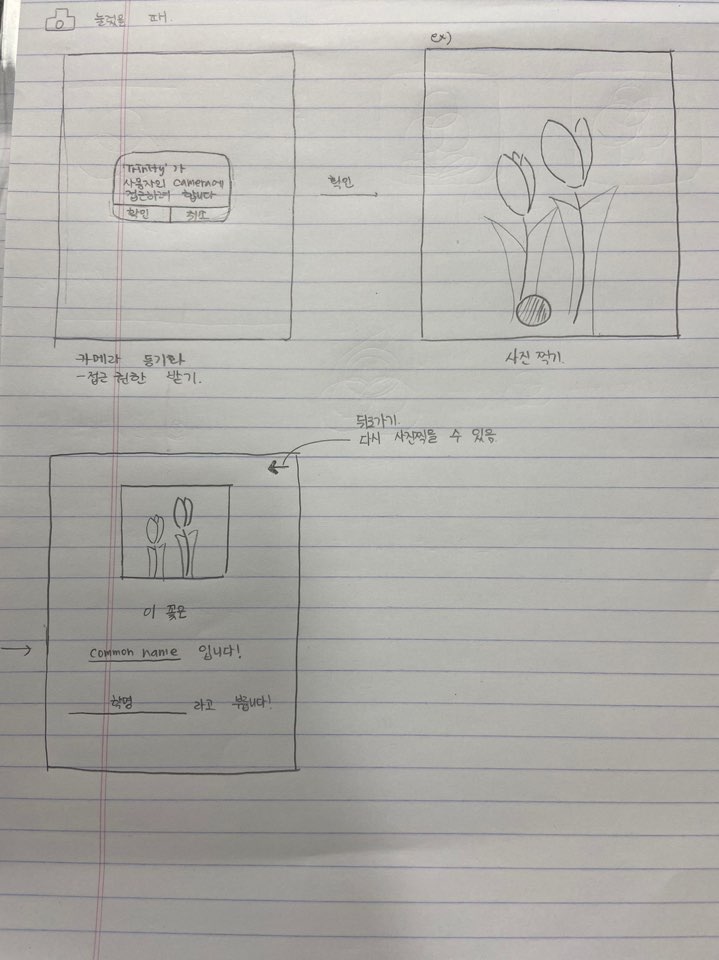 눌렀을 때.
ex)
'Trinity'가
사용자의 camera에
접근하려 합니다
확인 취소
확인
카메라 동기화
-접근 권한 받기.
사진 찍기.
뒤로가기.
다시 사진찍을 수 있음.
이 꽃은
common name 입니다!
학명 라고 부릅니다!